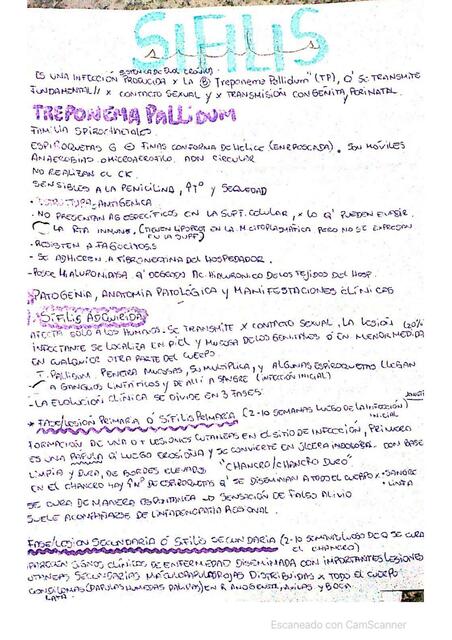 SIFILIS
ES UNA INFECCIÓN SISTEMICA DE EVOL CRÓNICA PRODUCIDA X LA Ⓑ "Treponema Pallidum" (TP), Q' SE TRANSMITE
FUNDAMENTAL// X CONTACTO SEXUAL Y X TRANSMISIÓN CONGENITA, PERINATAL.
TREPONEMA PALLIDUM
FAMILIA SPIROCHAETALES
ESPIROQUETAS G ⊖ FINAS CON FORMA DE HELICE (ENROSCADA). SON MÓVILES
ANAEROBIAS O MICROAEROFILO. ADN CIRCULAR
NO REALIZAN EL CK
SENSIBLES A LA PENICILINA, ↑Tº Y SEQUEDAD
- ESTRUCTURA ANTIGENICA
- NO PRESENTAN AG ESPECÍFICOS EN LA SUPF. CELULAR, X LO Q' PUEDEN EVADIR
LA RTA INMUNE. (TIENEN LIPOPROT EN LA M. CITOPLASMÁTICA PERO NO SE EXPRESAN
EN LA SUPF)
- RESISTEN A FAGOCITOSIS
- SE ADHIEREN A FIBRONECTINA DEL HOSPEDADOR.
- POSEE HIALURONIDASA Q' DEGRADA AC. HIALURONICO DE LOS TEJIDOS DEL HOSP.
PATOGENIA, ANATOMIA PATOLÓGICA Y MANIFESTACIONES CLINICAS
SIFILIS ADQUIRIDA
AFECTA SOLO A LOS HUMANOS. SE TRANSMITE X CONTACTO SEXUAL. LA LESIÓN (20%
INFECTANTE SE LOCALIZA EN PIEL Y MUCOSA DE LOS GENITALES Ó EN MENOR MEDIDA
EN CUALQUIER OTRA PARTE DEL CUERPO.
T. PALLIDUM PENETRA MUCOSAS, SE MULTIPLICA, Y ALGUNAS ESPIROQUETAS LLEGAN
A GANGLIOS LINFÁTICOS Y DE ALLÍ A SANGRE (INFECCIÓN INICIAL)
- LA EVOLUCIÓN CLÍNICA SE DIVIDE EN 3 FASES:
* FASE/LESIÓN PRIMARIA Ó SIFILIS PRIMARIA (2-10 SEMANAS LUEGO DE LA INFECCIÓN INICIAL)
FORMACIÓN DE UNA O + LESIONES CUTANEAS EN EL SITIO DE INFECCIÓN, PRIMERO
ES UNA PÁPULA Q' LUEGO EROSIONA Y SE CONVIERTE EN ÚLCERA INDOLORA. CON BASE
LIMPIA Y DURA, DE BORDES ELEVADOS "CHANCRO/CHANCRO DURO"
EN EL CHANCRO HAY ↑Nº DE ESPIROQUETAS Q' SE DISEMINAN A TODO EL CUERPO X • SANGRE
• LINFA
SE CURA DE MANERA ESPONTANEA LO SENSACIÓN DE FALSO ALIVIO
SUELE ACOMPAÑARSE DE LINFADENOPATIA REGIONAL.
FASE/LESIÓN SECUNDARIA Ó SIFILIS SECUNDARIA (2-10 SEMANAS LUEGO DE Q SE CURA
EL CHANCRO)
APARECEN SIGNOS CLÍNICOS DE ENFERMEDAD DISEMINADA CON IMPORTANTES LESIONES
CUTANEAS SECUNDARIAS MACULOPAPULOROJAS DISTRIBUIDAS X TODO EL CUERPO
CONDILOMAS (PAPULAS HUMEDAS PALIDAS) EN R. ANOGENITAL, AXILAS Y BOCA.
LATA
Escaneado con CamScanner